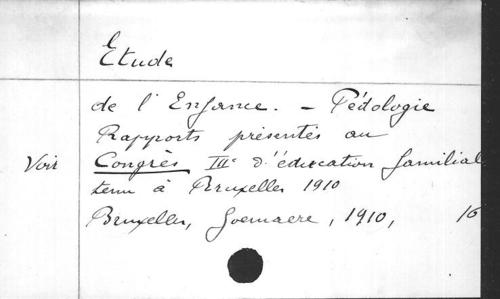 Etude
de l'Enfance. – Pédologie
Rapports présentés au
Voir Congrès IIIe d'éducation familial
tenu à Bruxelles 1910
Bruxelles, Goemaere, 1910, 16